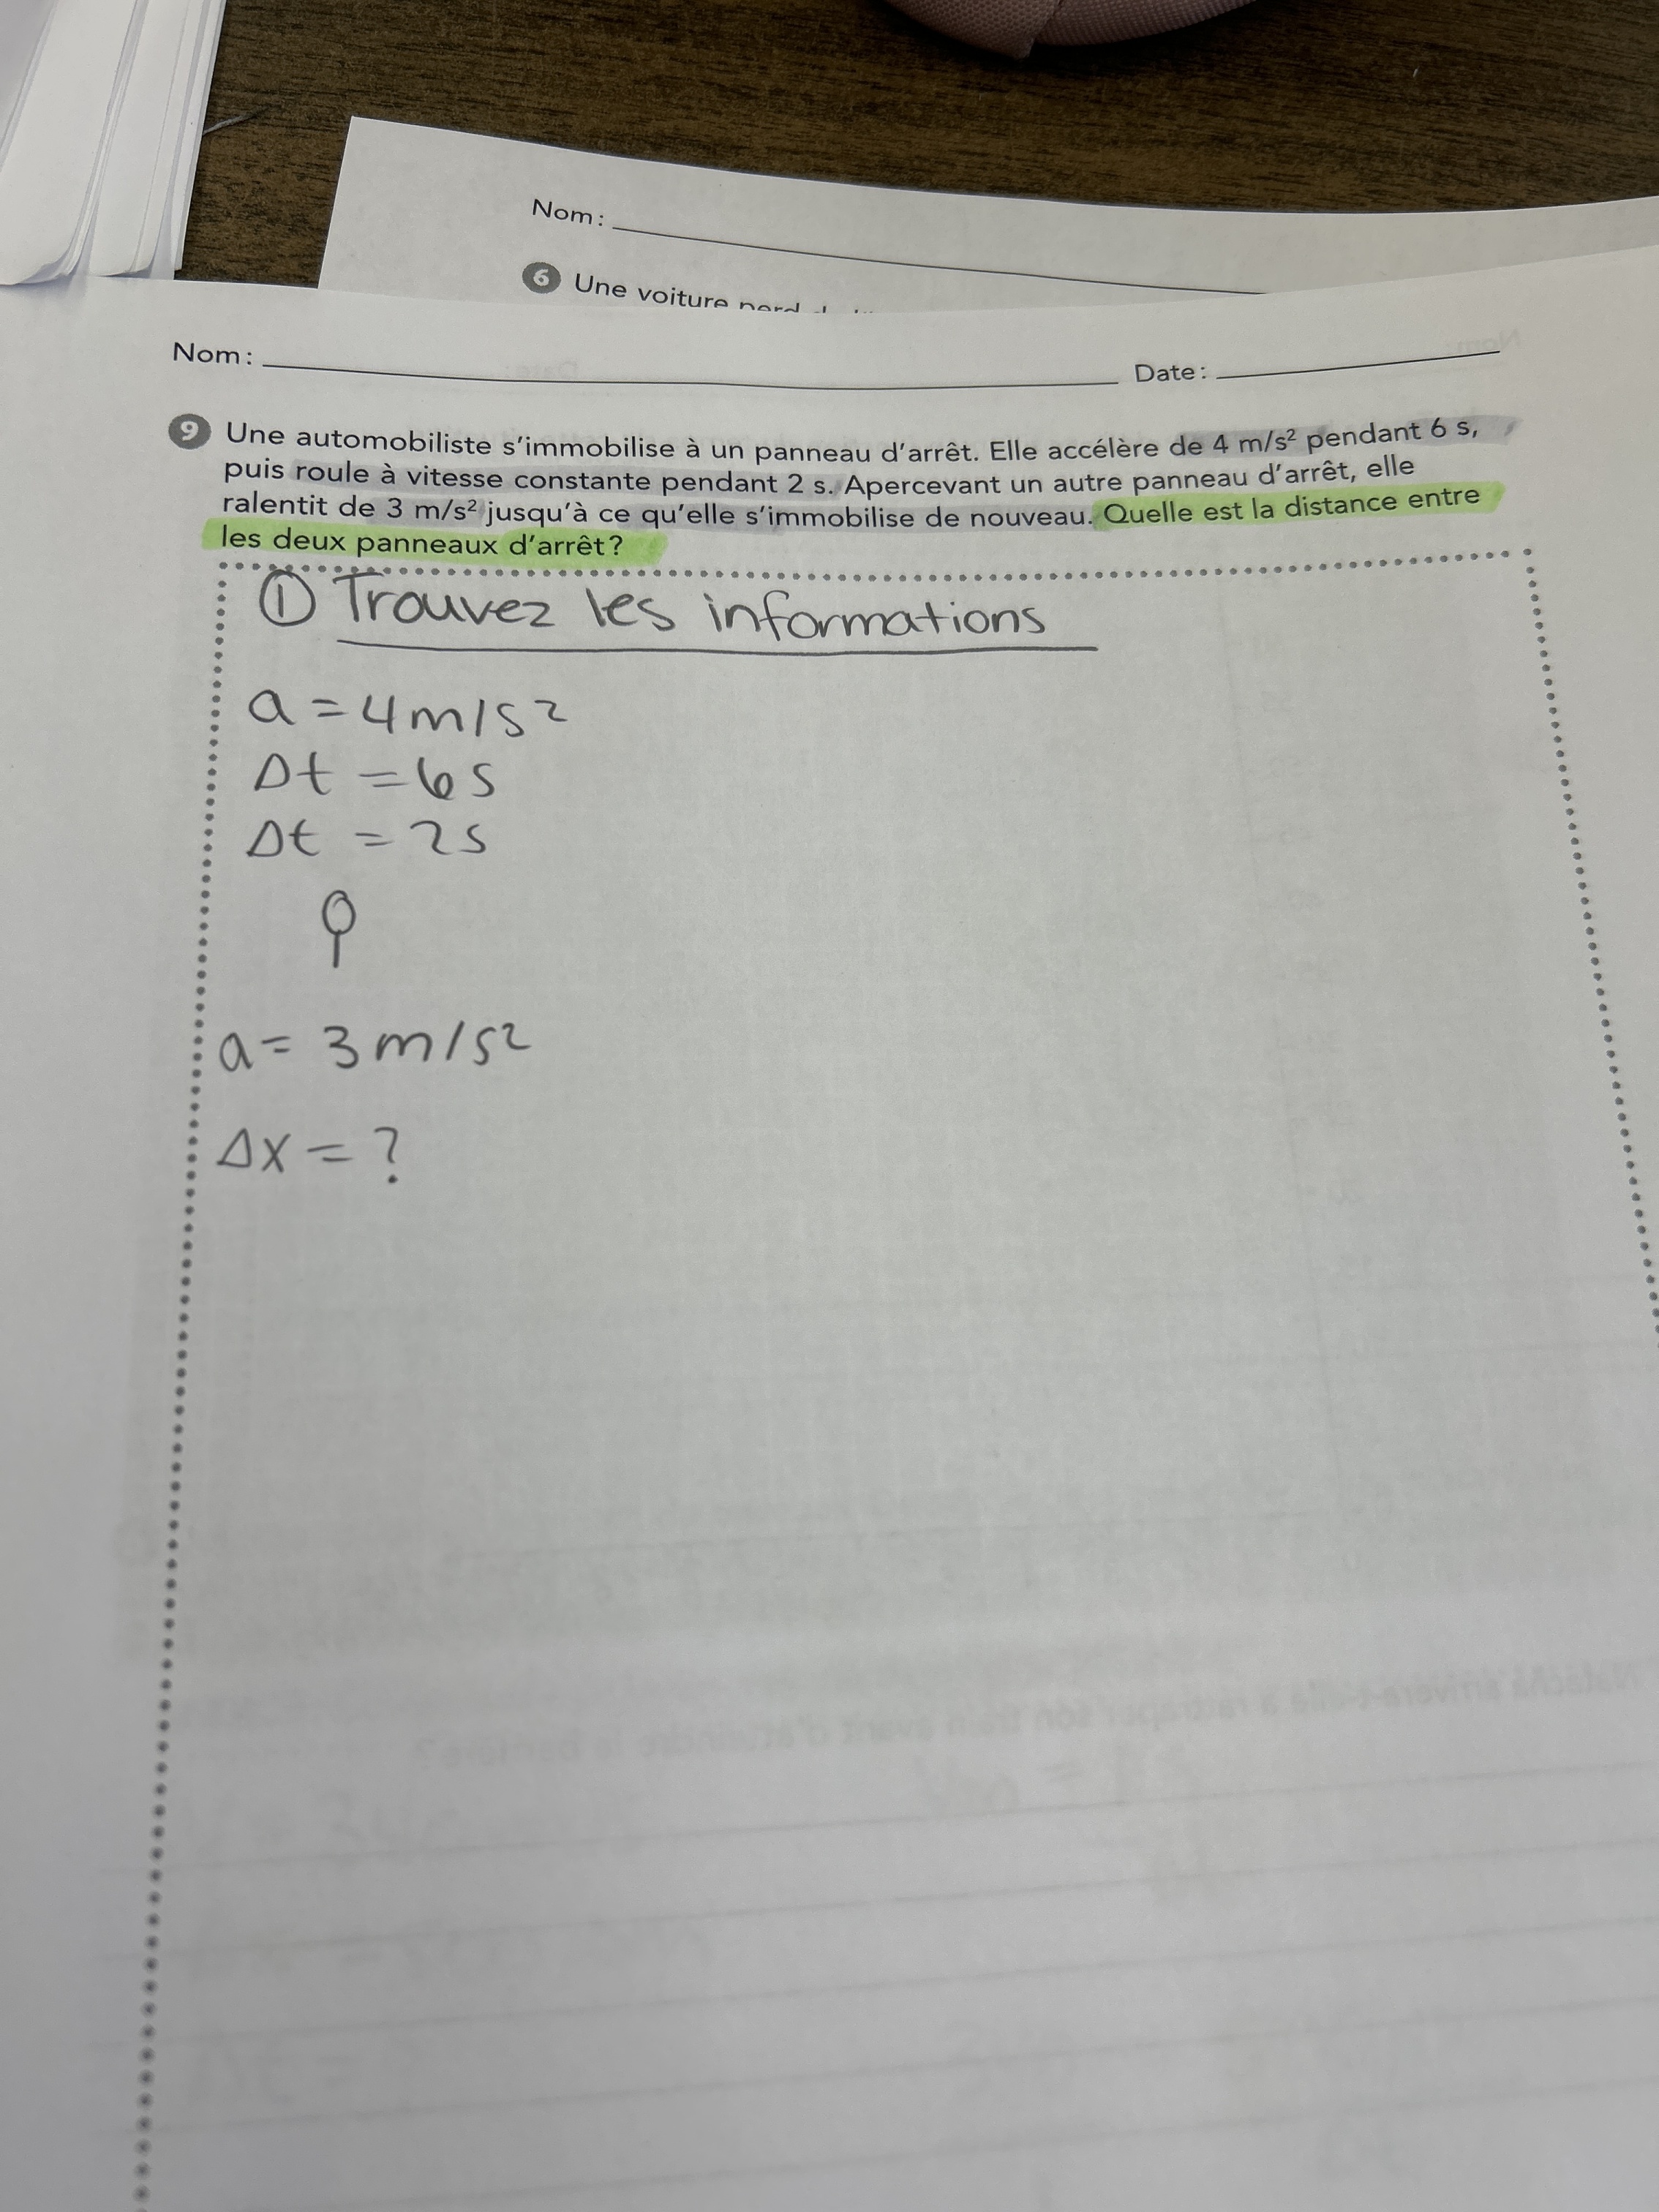 Nom:
6 Une voiture perd
Nom: Date:
9 Une automobiliste s'immobilise à un panneau d'arrêt. Elle accélère de 4 m/s² pendant 6 s,
puis roule à vitesse constante pendant 2 s. Apercevant un autre panneau d'arrêt, elle
ralentit de 3 m/s² jusqu'à ce qu'elle s'immobilise de nouveau. Quelle est la distance entre
les deux panneaux d'arrêt?
① Trouvez les informations
a = 4 m/s²
Δt = 6s
Δt = 2s
a = 3 m/s²
Δx = ?